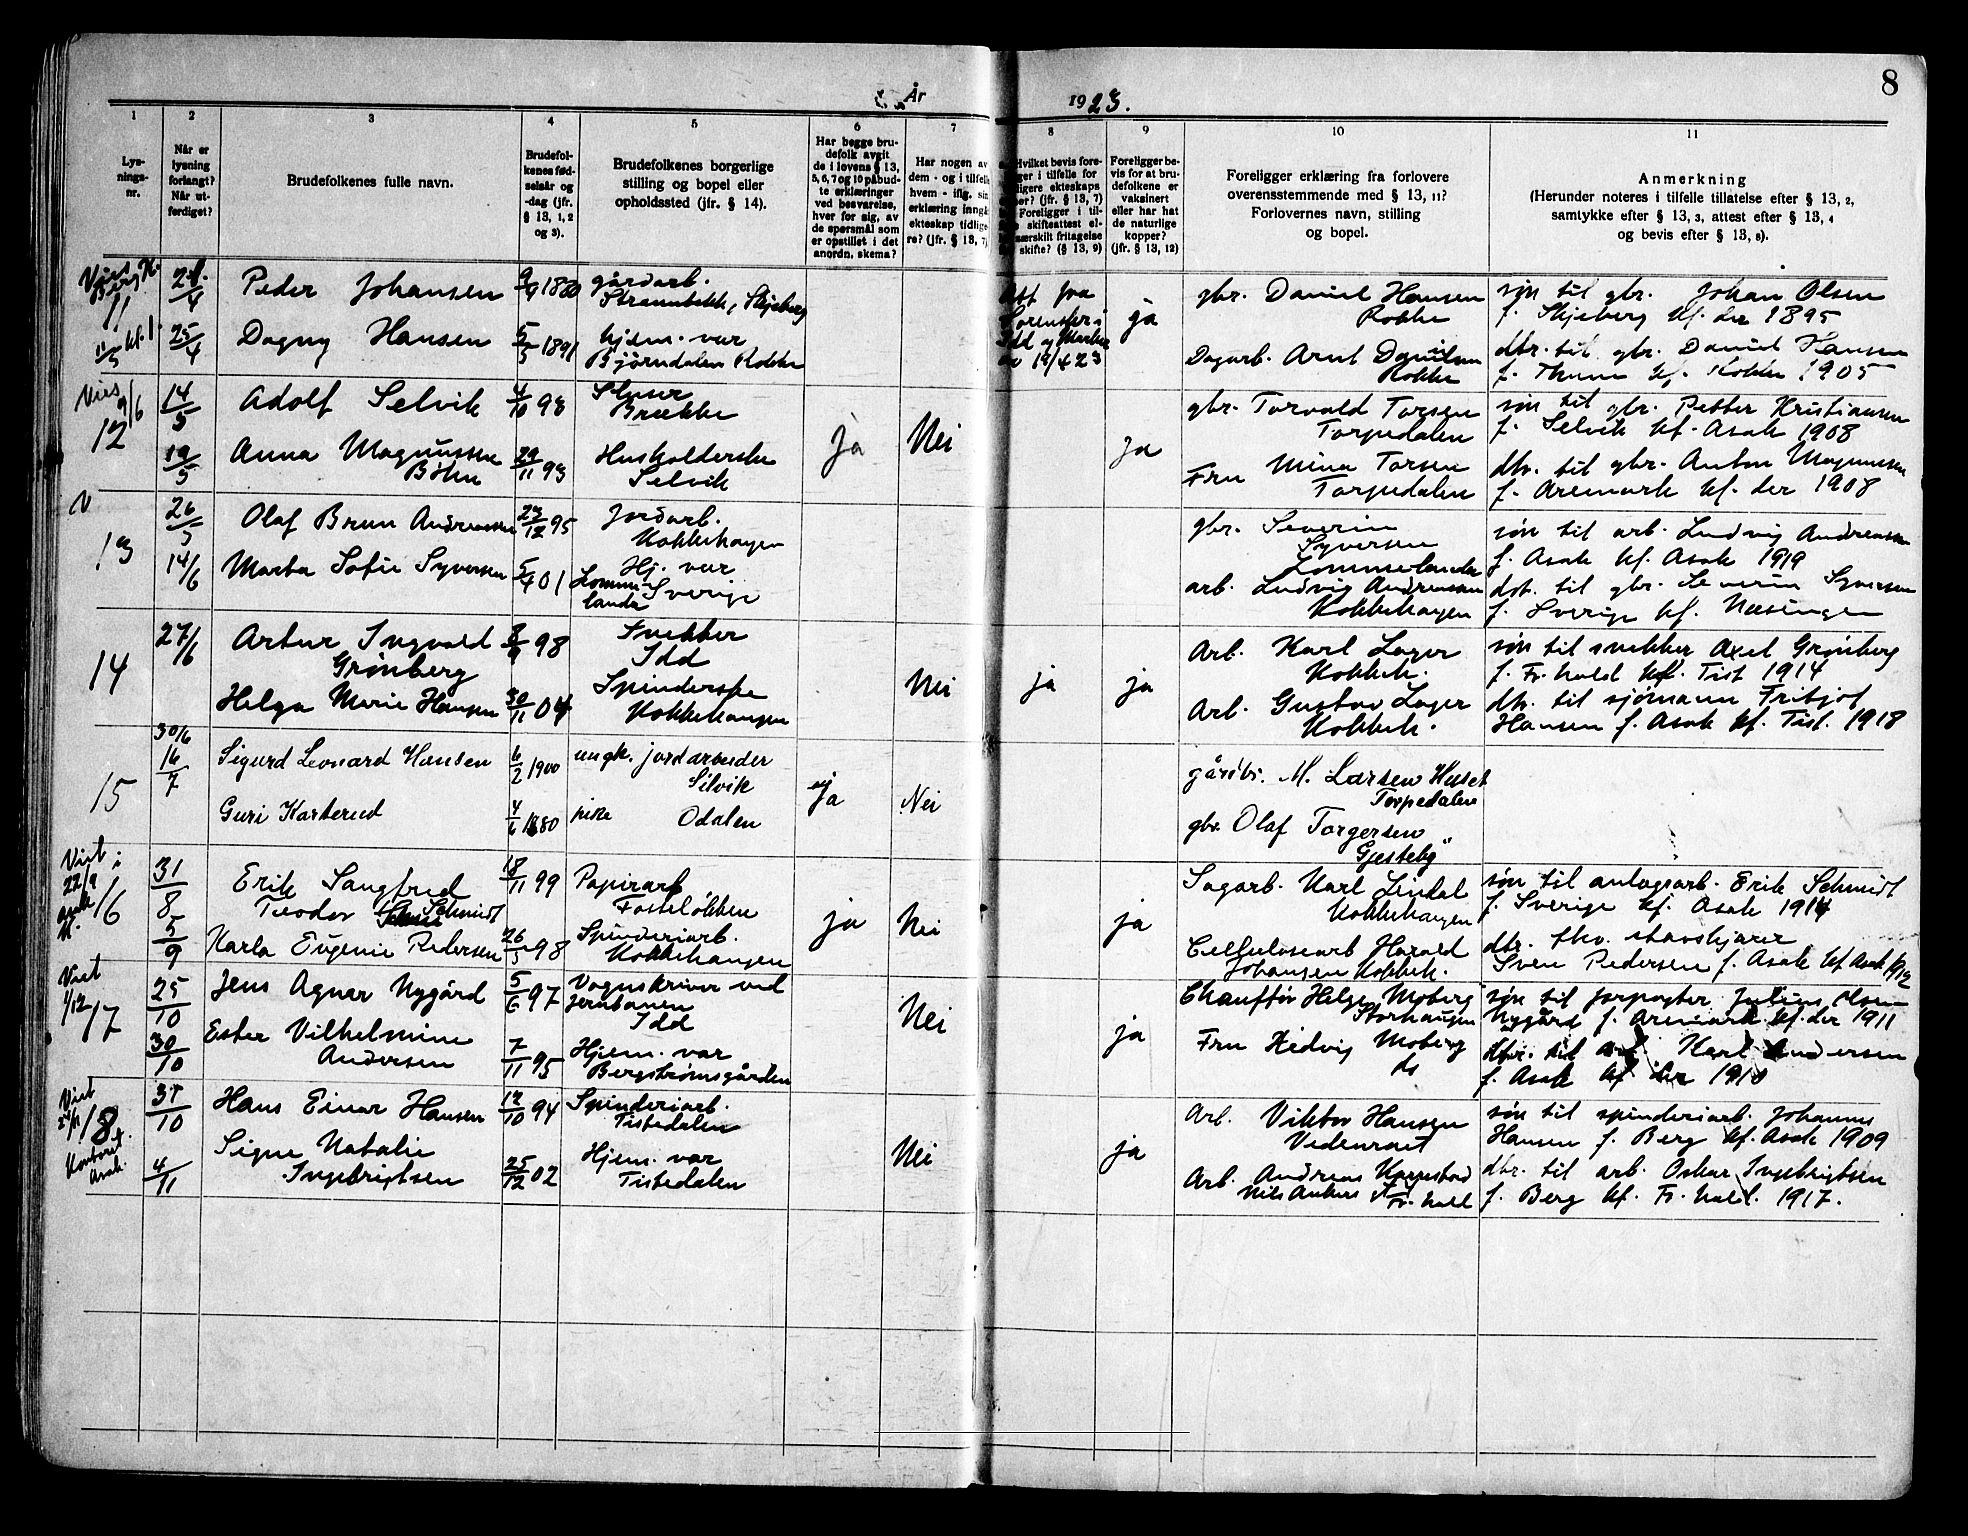 8
År 1923.
1
2
3
4
5
6
7
8
9
10
11
Lys-
nings-
nr.
Når er
lysning
forlangt?
Når ut-
ferdiget?
Brudefolkenes fulle navn.
Brudefol-
kenes fød-
selsår og
-dag (jfr.
§ 13, 1, 2
og 3).
Brudefolkenes borgerlige
stilling og bopel eller
opholdssted (jfr. § 14).
Har begge bru-
defolk avgit
de i lovens § 13,
5, 6, 7 og 10 påbud-
te erklæringer
ved besvarelse,
hver for sig, av
de spørsmål som
er opstillet i det
anordn. skema?
Har nogen av
dem - og i tilfelle
hvem - iflg. sin
erklæring inngå
ekteskap tidlige
re? (jfr. § 13, 7)
Hvilket bevis fore-
ger i tilfelle for
ligere ekteskaps
er? (jfr. § 13, 7)
Foreligger i til-
skifteattest el-
særskilt fritagelse
skifte? (§ 13, 9)
Foreligger be-
vis for at bru-
defolkene er
vaksinert
eller har hat
de naturlige
kopper?
(jfr. § 13, 12)
Foreligger erklæring fra forlovere
overensstemmende med § 13, 11?
Forlovernes navn, stilling
og bopel.
Anmerkning
(Herunder noteres i tilfelle tillatelse efter § 13, 2,
samtykke efter § 13, 3, attest efter § 13, 4
og bevis efter § 13, 8).
11
25/4
Peder Johansen
9/9 1880
gårdarb.
Skjeberg
ja
gbr. Daniel Hansen
Rokke
søn til gbr. Johan Olsen
f. Skjeberg kf. der 1895
Dagny Hansen
5/5 1891
hjem. vær
Bjørndalen Rokke
Dagarb. Arnt Danielsen
Rokke
dtr. til gbr. Daniel Hansen
f. Thune kf. Rokke 1905
Vies
9/6
12
14/5
19/5
Adolf Selvik
4/10 93
Sluser
Brekke
Ja
Nei
Ja
gbr. Torvald Torsen
Torpedalen
søn til gbr. Petter Kristiansen
f. Selvik kf. Asak 1908
Anna Magnussen
Bøhn
29/11 93
Husholderske
Selvik
Fru Mina Torsen
Torpedalen
dtr. til gbr. Anton Magnussen
f. Aremark kf. der 1908
V
13
26/5
14/6
Olaf Brun Andreassen
23/12 95
Jordarb.
Kokkehaugen
gbr. Severin
Syversen
Lommerlande
søn til arb. Ludvig Andreassen
f. Asak kf. Asak 1919
Marta Sofie Syversen
5/9 01
Hj. vær
Lommer-
lande
Sverige
arb. Ludvig Andreassen
Kokkehaugen
dtr. til gbr. Severin Syversen
f. Sverige kf. Næsinge
14
27/6
Artur Ingvald
Grønberg
8/9 98
Snekker
Idd
Nei
ja
ja
Arb. Karl Lager
Kokkeh.
søn til snekker Axel Grønberg
f. Fr.hald kf. Tist 1914
Helga Marie Hansen
30/11 04
Spinderske
Kokkehaugen
Arb. Gustav Lager
Kokkeh.
dtr. til sjømann Fritjof
Hansen f. Asak kf. Tist. 1918
15
30/6
16/7
Sigurd Leonard Hansen
6/2 1900
ungk. jordarbeider
Selvik
ja
Nei
M. Larsen Huset
Torpedalen
Guri Karterud
4/6 1880
pike
Odalen
gbr. Olaf Torgersen
Gjesteby
Viet i
22/9
16
31/8
5/9
Erik Sangfred
Teodor Schmidt
18/11 99
Papirarb
Fosseløkken
ja
Nei
ja
Sagarb. Karl Lindal
Kokkehaugen
søn til anlegsarb. Erik Schmidt
f. Sverige kf. Asak 1914
Karla Eugenie Pedersen
26/5 98
Spinderiarb.
Kokkehaugen
Cellulosearb Harald
Johansen Kokkeh.
dtr. fhv. stavskjærer
Sven Pedersen f. Asak kf Asak 1912
Viet
1/12
17
25/10
30/10
Jens Agnar Nygård
5/6 97
Vognskriver ved
Jernbanen
Idd
Nei
ja
Chauffør Helge Moberg
Storhaugen
søn til forpagter Julius Olsen
Nygård f. Aremark kf. der 1911
Ester Vilhelmine
Andersen
7/11 95
Hjem. vær
Bergstrømsgården
Fru Hedvig Moberg
do
dtr. til arb. Karl Andersen
f. Asak kf der 1910
Viet
18
Kontoret
Asak.
31/10
4/11
Hans Einar Hansen
12/10 94
Spinderiarb.
Tistedalen
Nei
ja
Arb. Viktor Hansen
Vedenraet
søn til spinderiarb. Johannes
Hansen f. Berg kf. Asak 1909
Signe Natalie
Ingebrigtsen
25/12 02
Hjem. vær
Tistedalen
Arb. Andreas
Nils Ankers Fr.hald
dtr. til arb. Oskar Ingebrigtsen
f. Berg kf. Fr.hald. 1917.